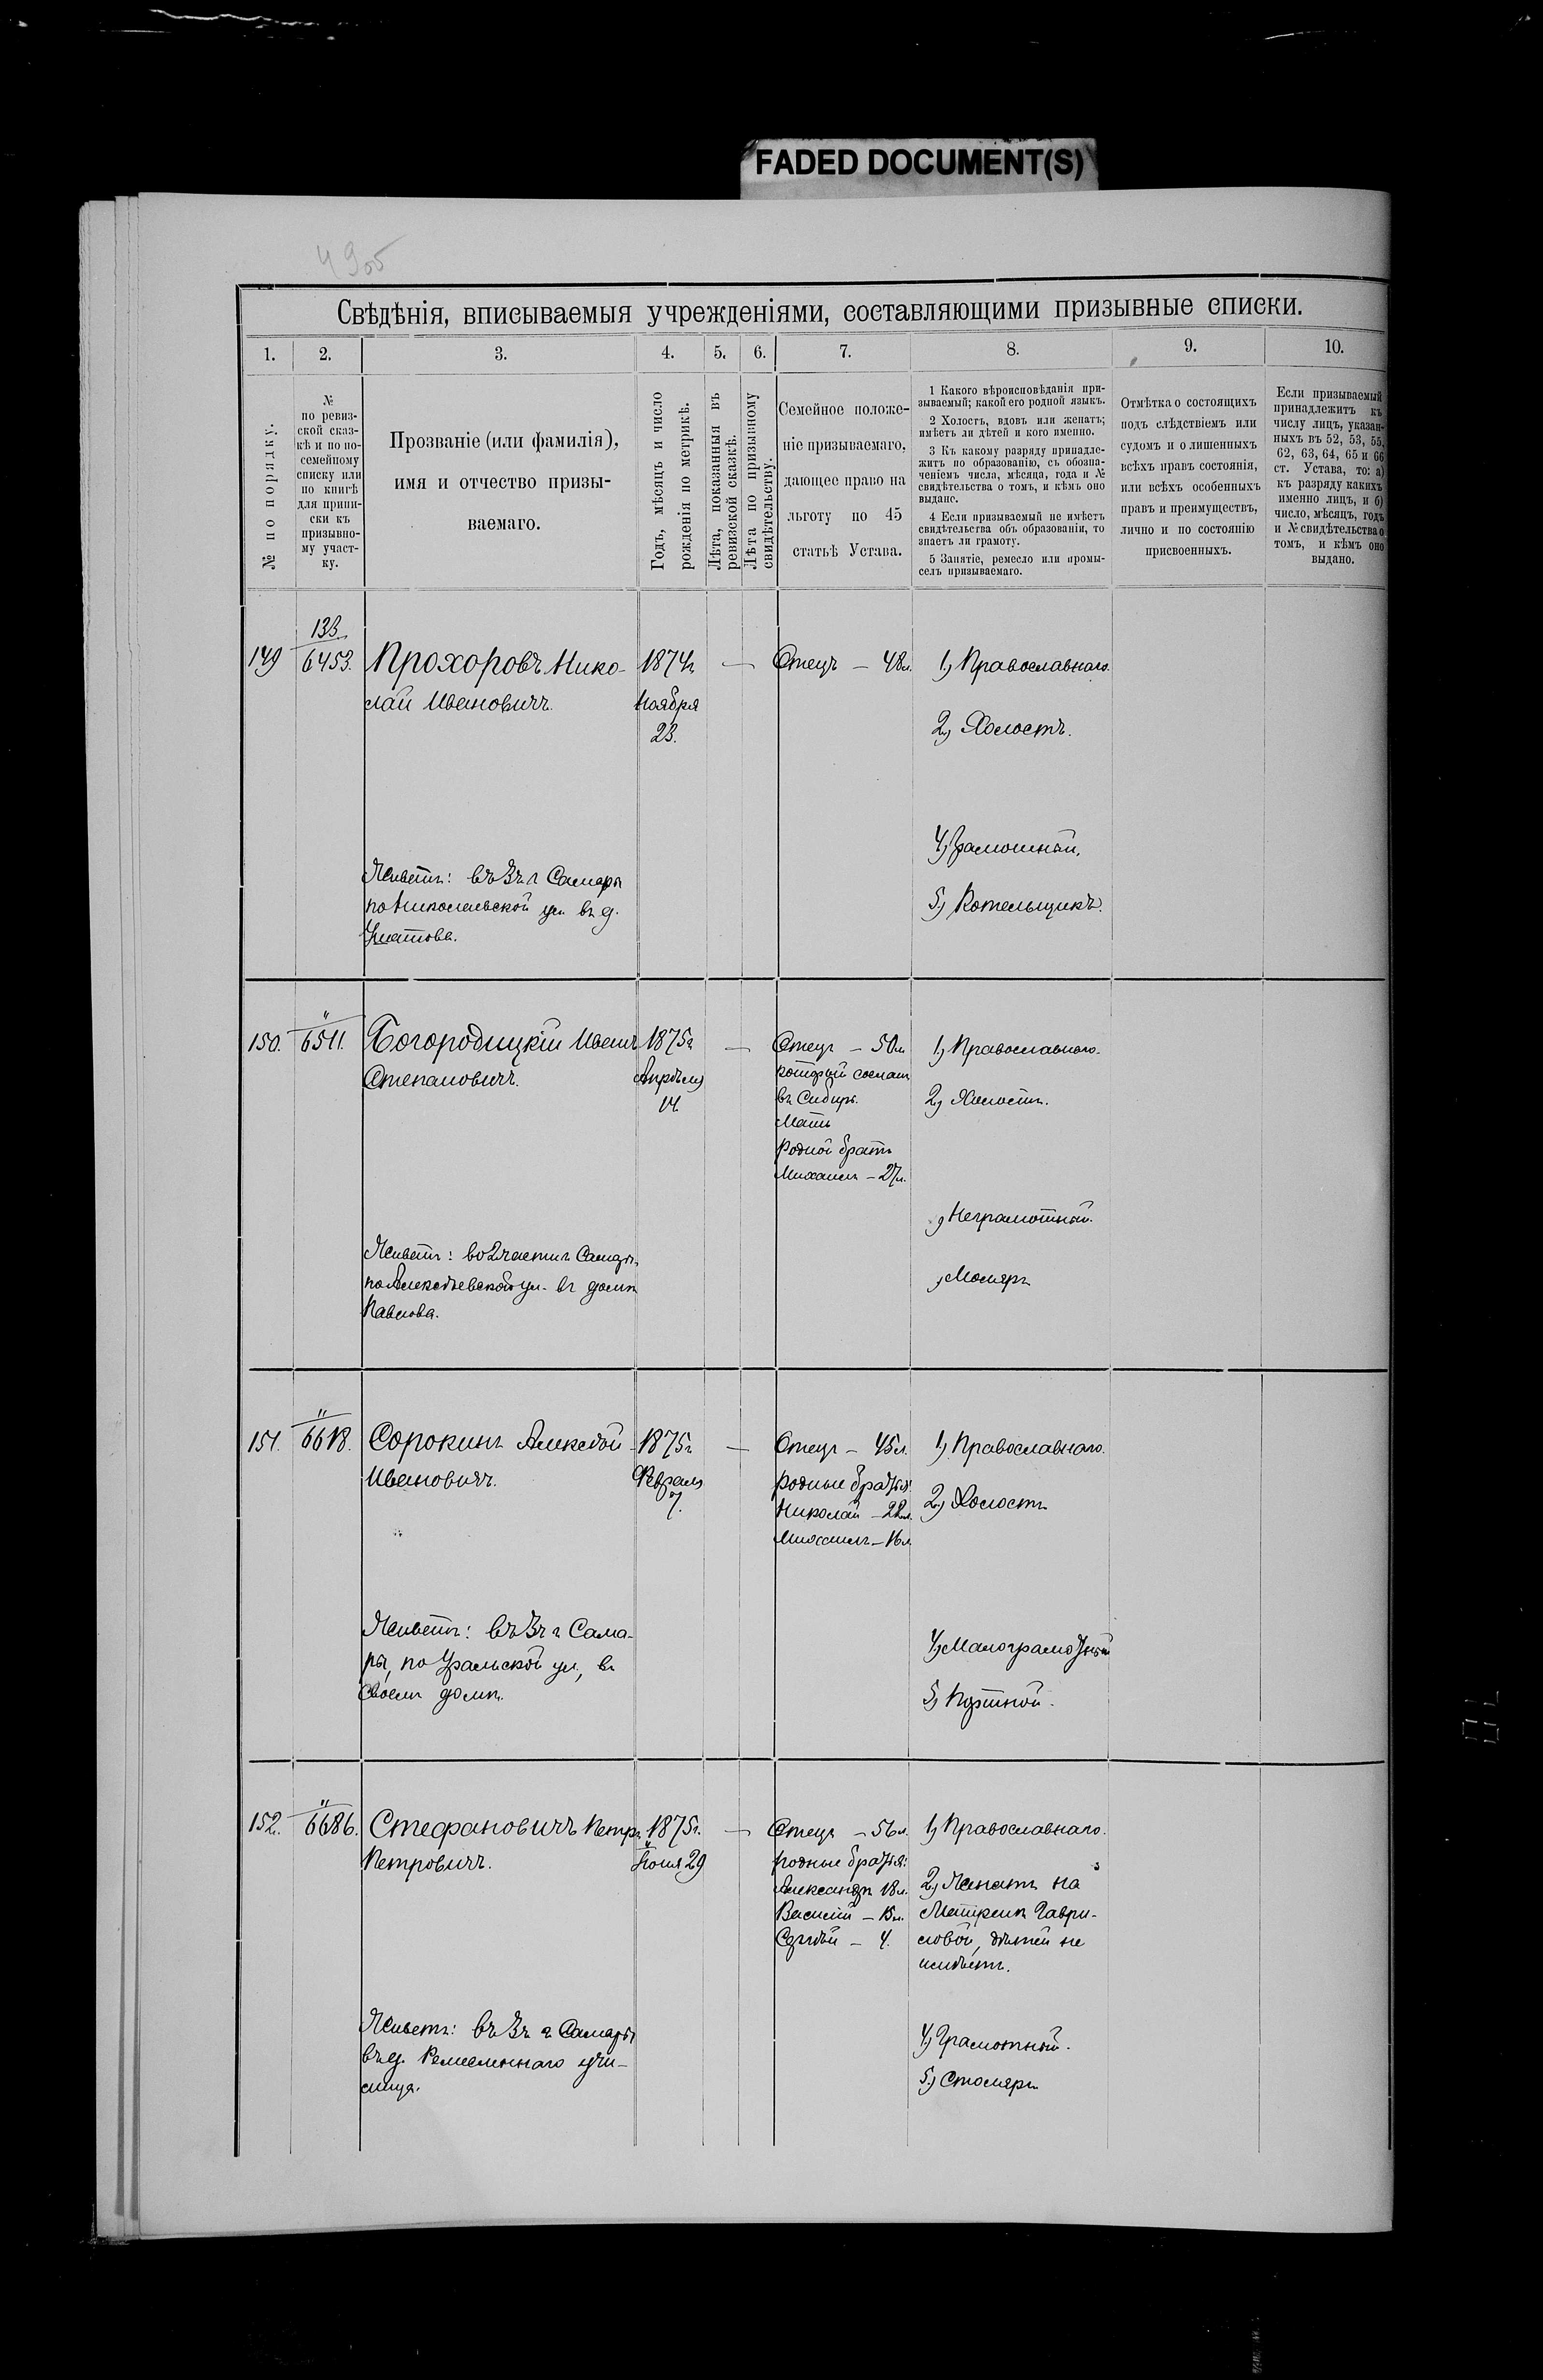 FADED DOCUMENT(S)
4905
Свѣдѣнія, вписываемыя учрежденіями, составляющими призывные списки.
1. 2. 3. 4. 5. 6. 7. 8. 9. 10.
№ по порядку.
№
по ревиз-
ской сказ-
кѣ и по по-
семейному
списку или
по книгѣ
для припи-
ски къ
призывно-
му участ-
ку.
Прозваніе (или фамилія),
имя и отчество призы-
ваемаго.
Годъ, мѣсяцъ и число
рожденія по метрикѣ.
Лѣта, показанныя въ
ревизской сказкѣ.
Лѣта по призывному
свидѣтельству.
Семейное положе-
ніе призываемаго,
дающее право на
льготу по 45
статьѣ Устава.
1 Какого вѣроисповѣданія при-
зываемый; какой его родной языкъ.
2 Холостъ, вдовъ или женатъ;
имѣетъ ли дѣтей и кого именно.
3 Къ какому разряду принадле-
житъ по образованію, съ обозна-
ченіемъ числа, мѣсяца, года и №
свидѣтельства о томъ, и кѣмъ оно
выдано.
4 Если призываемый не имѣетъ
свидѣтельства объ образованіи, то
знаетъ ли грамоту.
5 Занятіе, ремесло или промы-
селъ призываемаго.
Отмѣтка о состоящихъ
подъ слѣдствіемъ или
судомъ и о лишенныхъ
всѣхъ правъ состоянія,
или всѣхъ особенныхъ
правъ и преимуществъ,
лично и по состоянію
присвоенныхъ.
Если призываемый
принадлежитъ къ
числу лицъ, указан-
ныхъ въ 52, 53, 55,
62, 63, 64, 65 и 66
ст. Устава, то: а)
къ разряду какихъ
именно лицъ, и б)
число, мѣсяцъ, годъ
и № свидѣтельства о
томъ, и кѣмъ оно
выдано.
149
133.
6453.
Прохоровъ Нико-
лай Ивановичъ.
Живетъ: въ 3 ч. г. Самары
по Николаевской ул. въ д.
1874 г.
Ноября
23.
—
Отецъ — 48 л.
1) Православнаго.
2) Холостъ.
4) Грамотный.
5) Котельщикъ.
150.
"
6511.
Богородицкій Иванъ
Степановичъ.
Живетъ: во 2 части г. Самары,
по Алексѣевской ул. въ домѣ
Павлова.
1875 г.
Апрѣля
14.
—
Отецъ — 50 л.
который сосланъ
въ Сибирь.
Мать
Родной братъ
Михаилъ — 27 л.
1) Православнаго.
2) Холостъ.
) Неграмотный.
) Моляръ
151.
"
6618.
Сорокинъ Алексѣй
Ивановичъ.
Живетъ: въ 3 ч. г. Сама-
ры, по Уральской ул., въ
своемъ домѣ.
1875 г.
Февраля
7.
—
Отецъ — 45 л.
родные братья:
Николай — 22 л.
Михаилъ — 16 л.
1) Православнаго.
2) Холостъ
4) Малограмотный
5) Портной.
152.
"
6686.
Стефановичъ Петръ
Петровичъ.
Живетъ: въ 3 ч. г. Самары
въ д. Ремесленнаго учи-
лища.
1875 г.
Іюня 29
—
Отецъ — 56 л.
родные братья:
Александръ 18 л.
Василій — 15 л.
Сергѣй — 4.
1) Православнаго.
2) Женатъ на
Матренѣ Гаври-
ловой, дѣтей не
имѣетъ.
4) Грамотный.
5) Столяръ